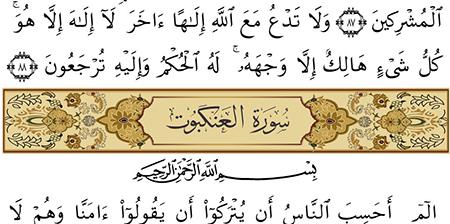 ٱلْمُشْرِكِينَ ٨٧ وَلَا تَدْعُ مَعَ ٱللَّهِ إِلَٰهًا ءَاخَرَ ۘ لَآ إِلَٰهَ إِلَّا هُوَ ۚ
كُلُّ شَىْءٍ هَالِكٌ إِلَّا وَجْهَهُۥ ۚ لَهُ ٱلْحُكْمُ وَإِلَيْهِ تُرْجَعُونَ ٨٨
سُورَةُ العَنكَبُوت
بِسْمِ ٱللَّهِ ٱلرَّحْمَٰنِ ٱلرَّحِيمِ
الٓمٓ أَحَسِبَ ٱلنَّاسُ أَن يُتْرَكُوٓا۟ أَن يَقُولُوٓا۟ ءَامَنَّا وَهُمْ لَا